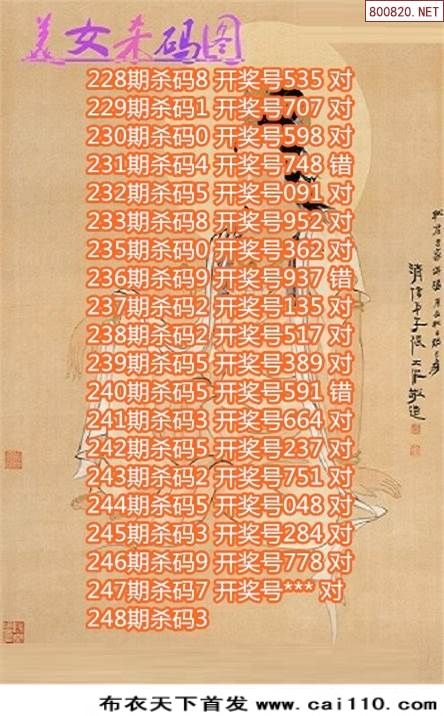 800820.NET
美女杀码图
228期杀码8 开奖号535 对
229期杀码1 开奖号707 对
230期杀码0 开奖号598 对
231期杀码4 开奖号748 错
232期杀码5 开奖号091 对
233期杀码8 开奖号952 对
235期杀码0 开奖号362 对
236期杀码9 开奖号937 错
237期杀码2 开奖号135 对
238期杀码2 开奖号517 对
239期杀码5 开奖号389 对
240期杀码5 开奖号591 错
241期杀码3 开奖号664 对
242期杀码5 开奖号237 对
243期杀码2 开奖号751 对
244期杀码5 开奖号048 对
245期杀码3 开奖号284 对
246期杀码9 开奖号778 对
247期杀码7 开奖号*** 对
248期杀码3
布衣天下首发 www.cai110.com